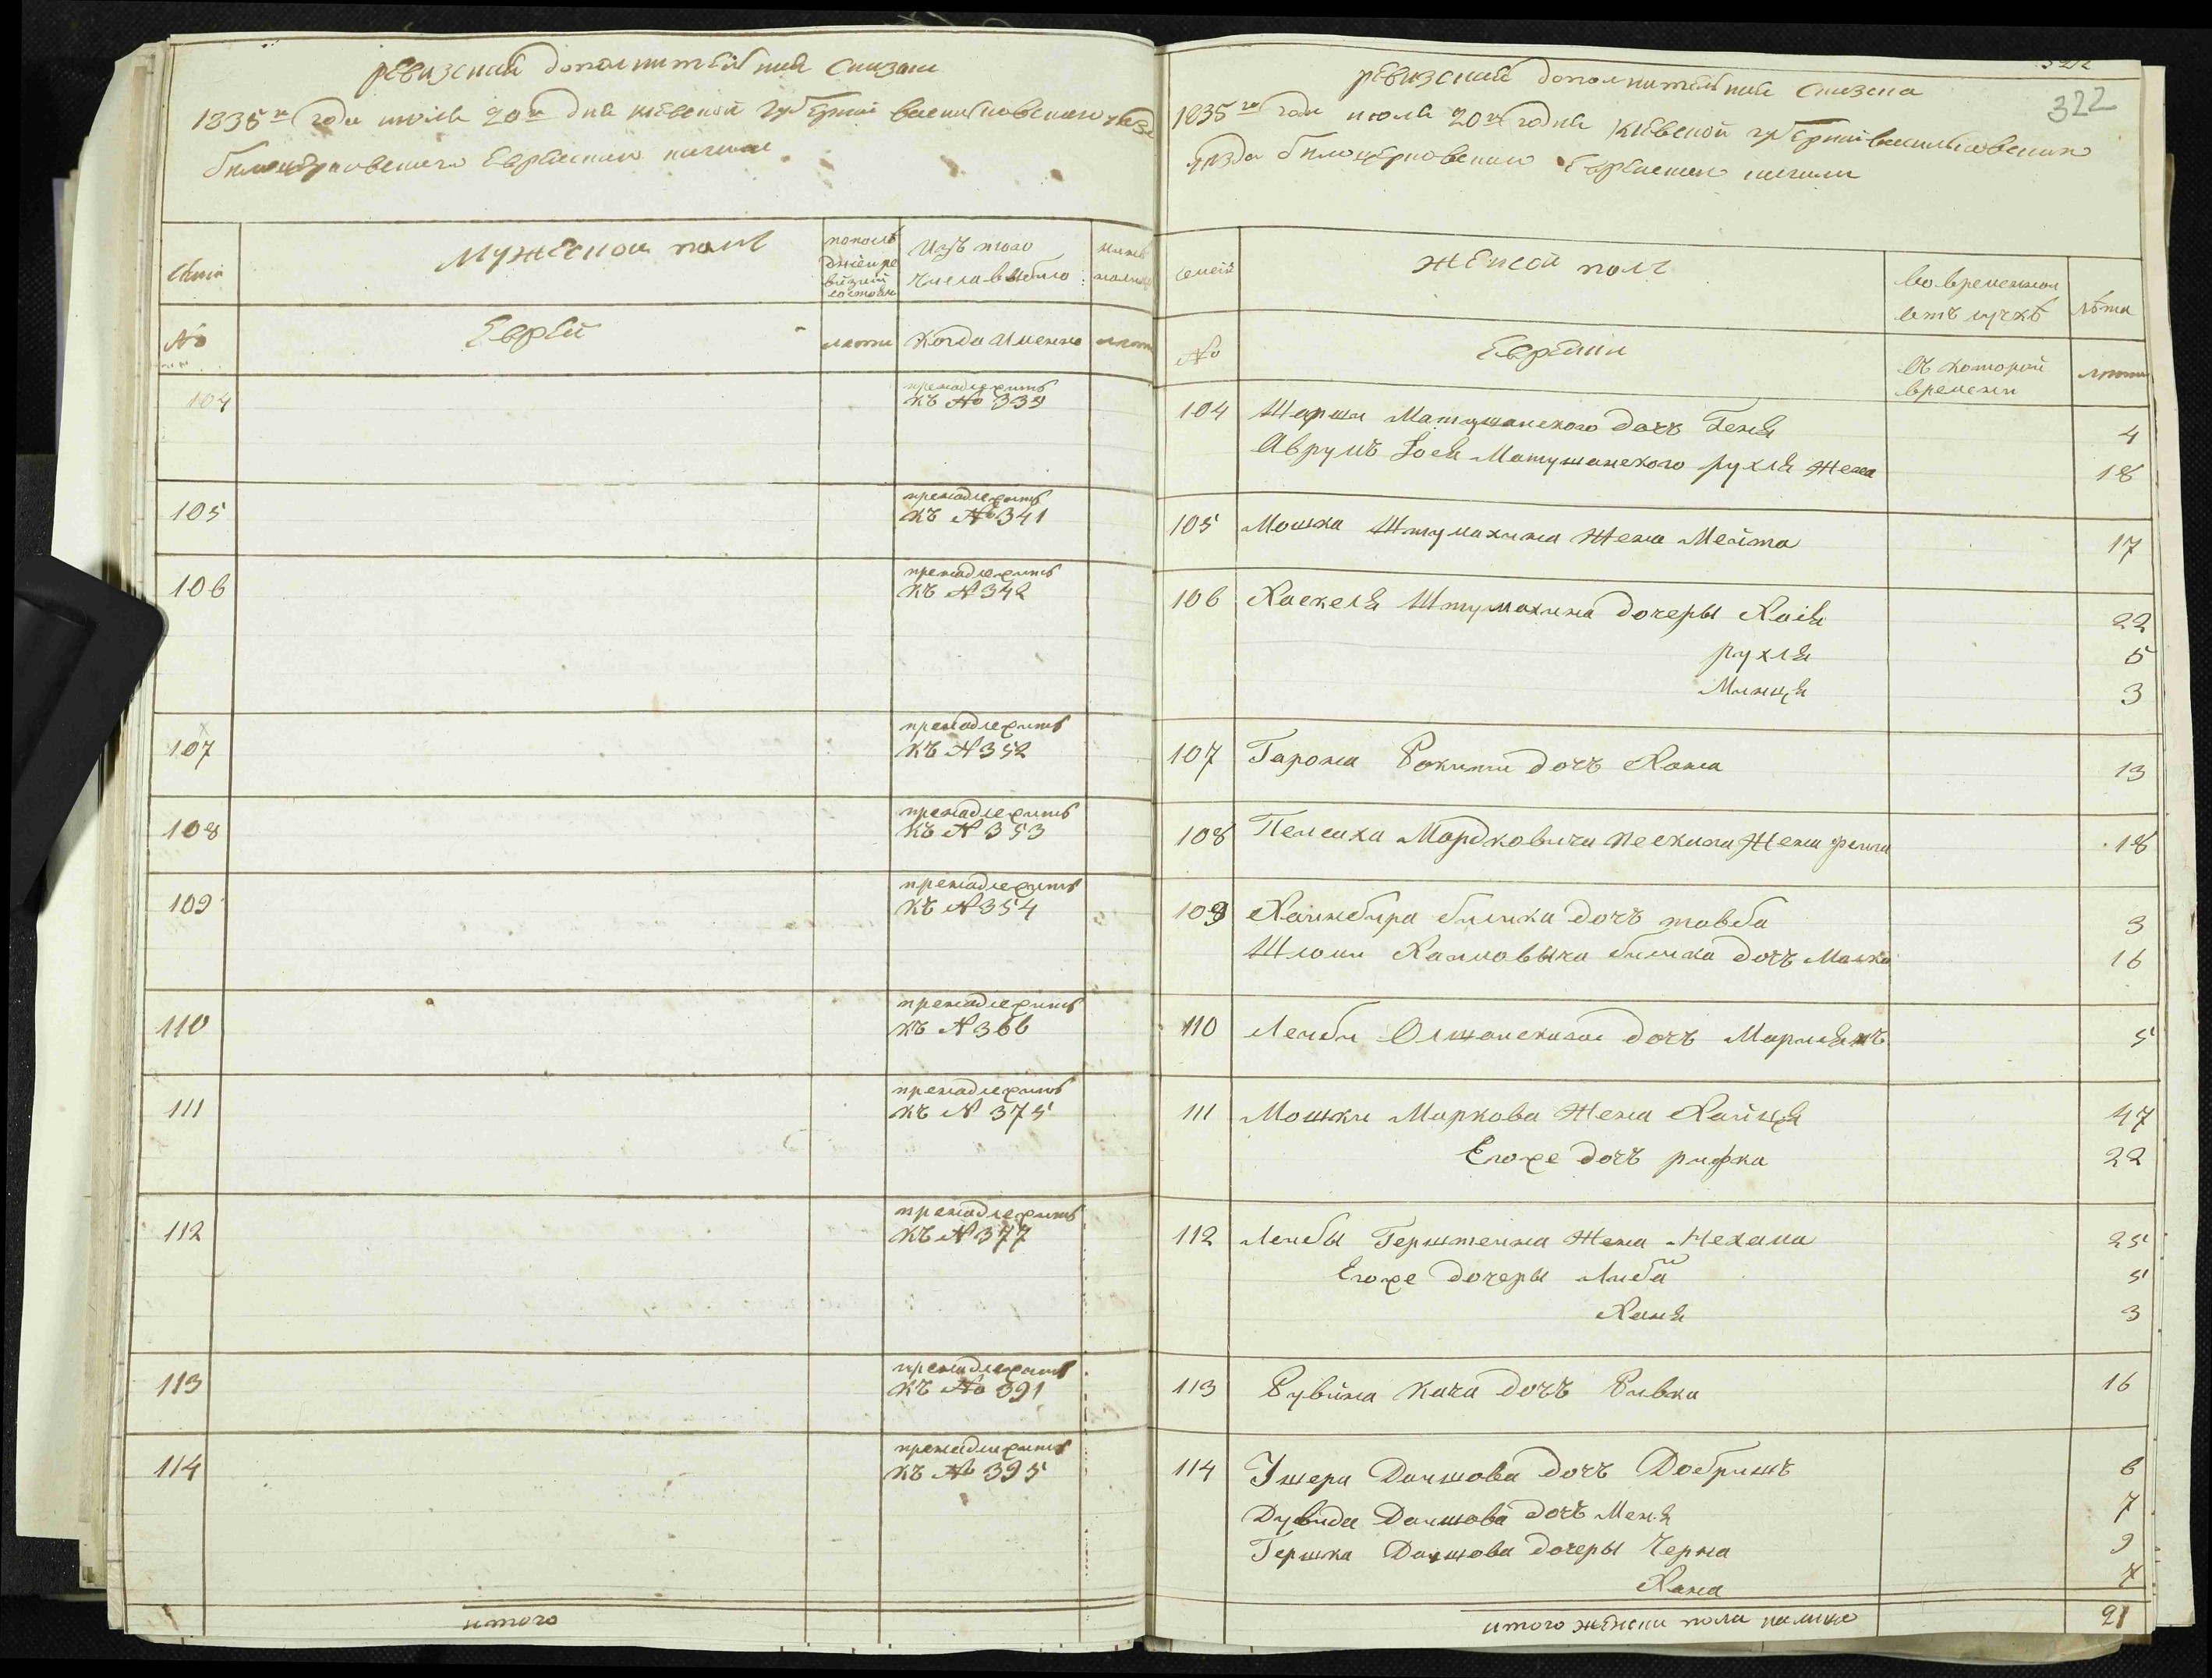 ревизская дополнительная сказка
1835го года июля 20го дня киевской губернии васильковского уезда
белоцерковского еврейского
Мужеской полъ
Изъ того числа выбыло
№
Еврей
лета
когда именно
лета
104
пренадлежитъ къ № 339
105
пренадлежитъ къ № 341
106
пренадлежитъ къ № 342
107
пренадлежитъ къ № 352
108
пренадлежитъ къ № 353
109
пренадлежитъ къ № 354
110
пренадлежитъ къ № 366
111
пренадлежитъ къ № 375
112
пренадлежитъ къ № 377
113
пренадлежитъ къ № 391
114
пренадлежитъ къ № 395
итого
322
ревизская дополнительная сказка
1835го года июля 20го дня киевской губернии васильковского
уезда белоцерковского еврейского
семей
женской полъ
во временной отлучкѣ
лѣта
№
Еврейки
съ которой времени
лета
104 Шарши Матушанского дочъ Геня 4
Аврумъ Іося Матушанского рухля жена 18
105 Мошка Штумахина жена Мейта 17
106 Хаскеля Штумахина дочеры Хаія 22
рухля 5
Минця 3
107 Гарона дочъ Хана 13
108 Пейсаха Мордковича Пескина жена 18
109 дочъ товба 3
Шломи Хаимовича дочъ Малка 16
110 Лейбы Олшанскаго дочъ 5
111 Мошки Маркова жена Хайця 47
Егоже дочъ рифка 22
112 Лейбы Герштейна жена Нехама 25
Егоже дочеры Либа 5
Ханя 3
113 Рувина Кача дочъ Ривка 16
114 Ушера Дашшова дочъ Добришъ 6
Дувида Дашшова дочъ Меня 7
Гершка Дашшова дочеры Черна 9
Хана 7
итого женска пола налицо 21